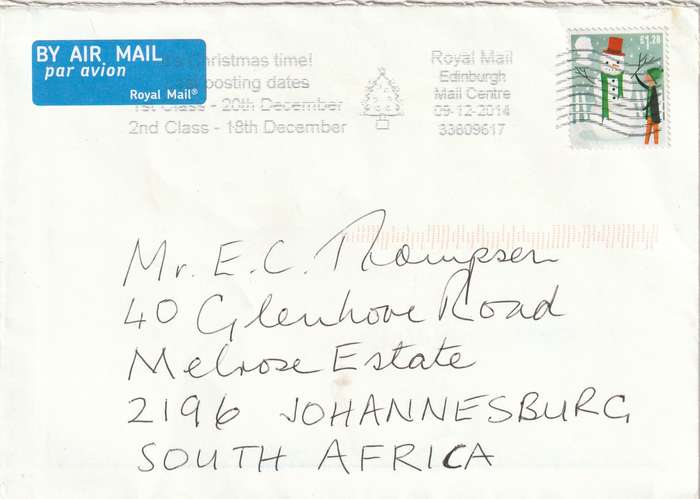 BY AIR MAIL
par avion
Royal Mail®
Christmas time!
posting dates
1st Class - 20th December
2nd Class - 18th December
Royal Mail
Edinburgh
Mail Centre
09-12-2014
33609617
£1.28
Mr. E. C. Thompsen
40 Glenhove Road
Melrose Estate
2196 JOHANNESBURG
SOUTH AFRICA